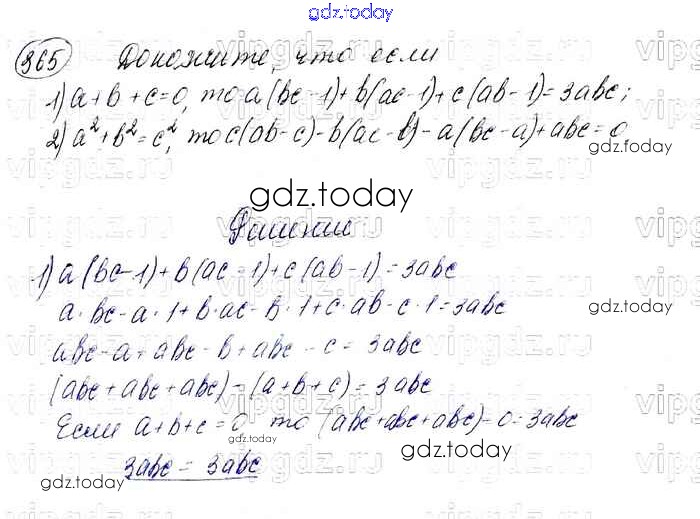 gdz.today
365 Докажите, что если
1) a+b+c=0, то a(bc-1)+b(ac-1)+c(ab-1)=3abc;
2) a²+b²=c², то c(ab-c)-b(ac-b)-a(bc-a)+abc=0
gdz.today
gdz.today
Решение:
1) a(bc-1)+b(ac-1)+c(ab-1)=3abc
a·bc-a·1+b·ac-b·1+c·ab-c·1=3abc
gdz.today
abc-a+abc-b+abc-c=3abc
(abc+abc+abc)-(a+b+c)=3abc
Если a+b+c=0 то (abc+abc+abc)-0=3abc
gdz.today
3abc=3abc
gdz.today
gdz.today
vipgdz.ru